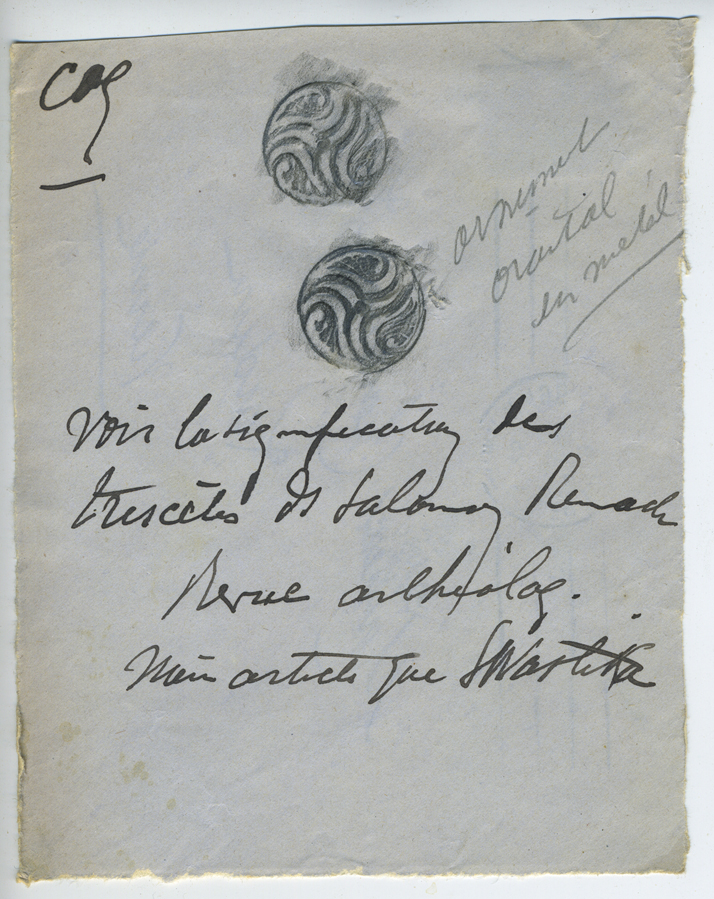 Coq
ornement
oriental
en métal
Voir la signification des
triscèles ds Salomon Reinach
Revue archéolog.
Même article que Swastika